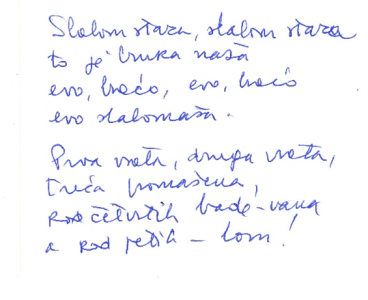 Slalom staza, slalom staza
to je bruka naša
evo, braćo, evo, braćo
evo slalomaša.
Prva vrata, druga vrata,
treća promašena,
kod četvrtih bade-vana
a kod petih – lom!